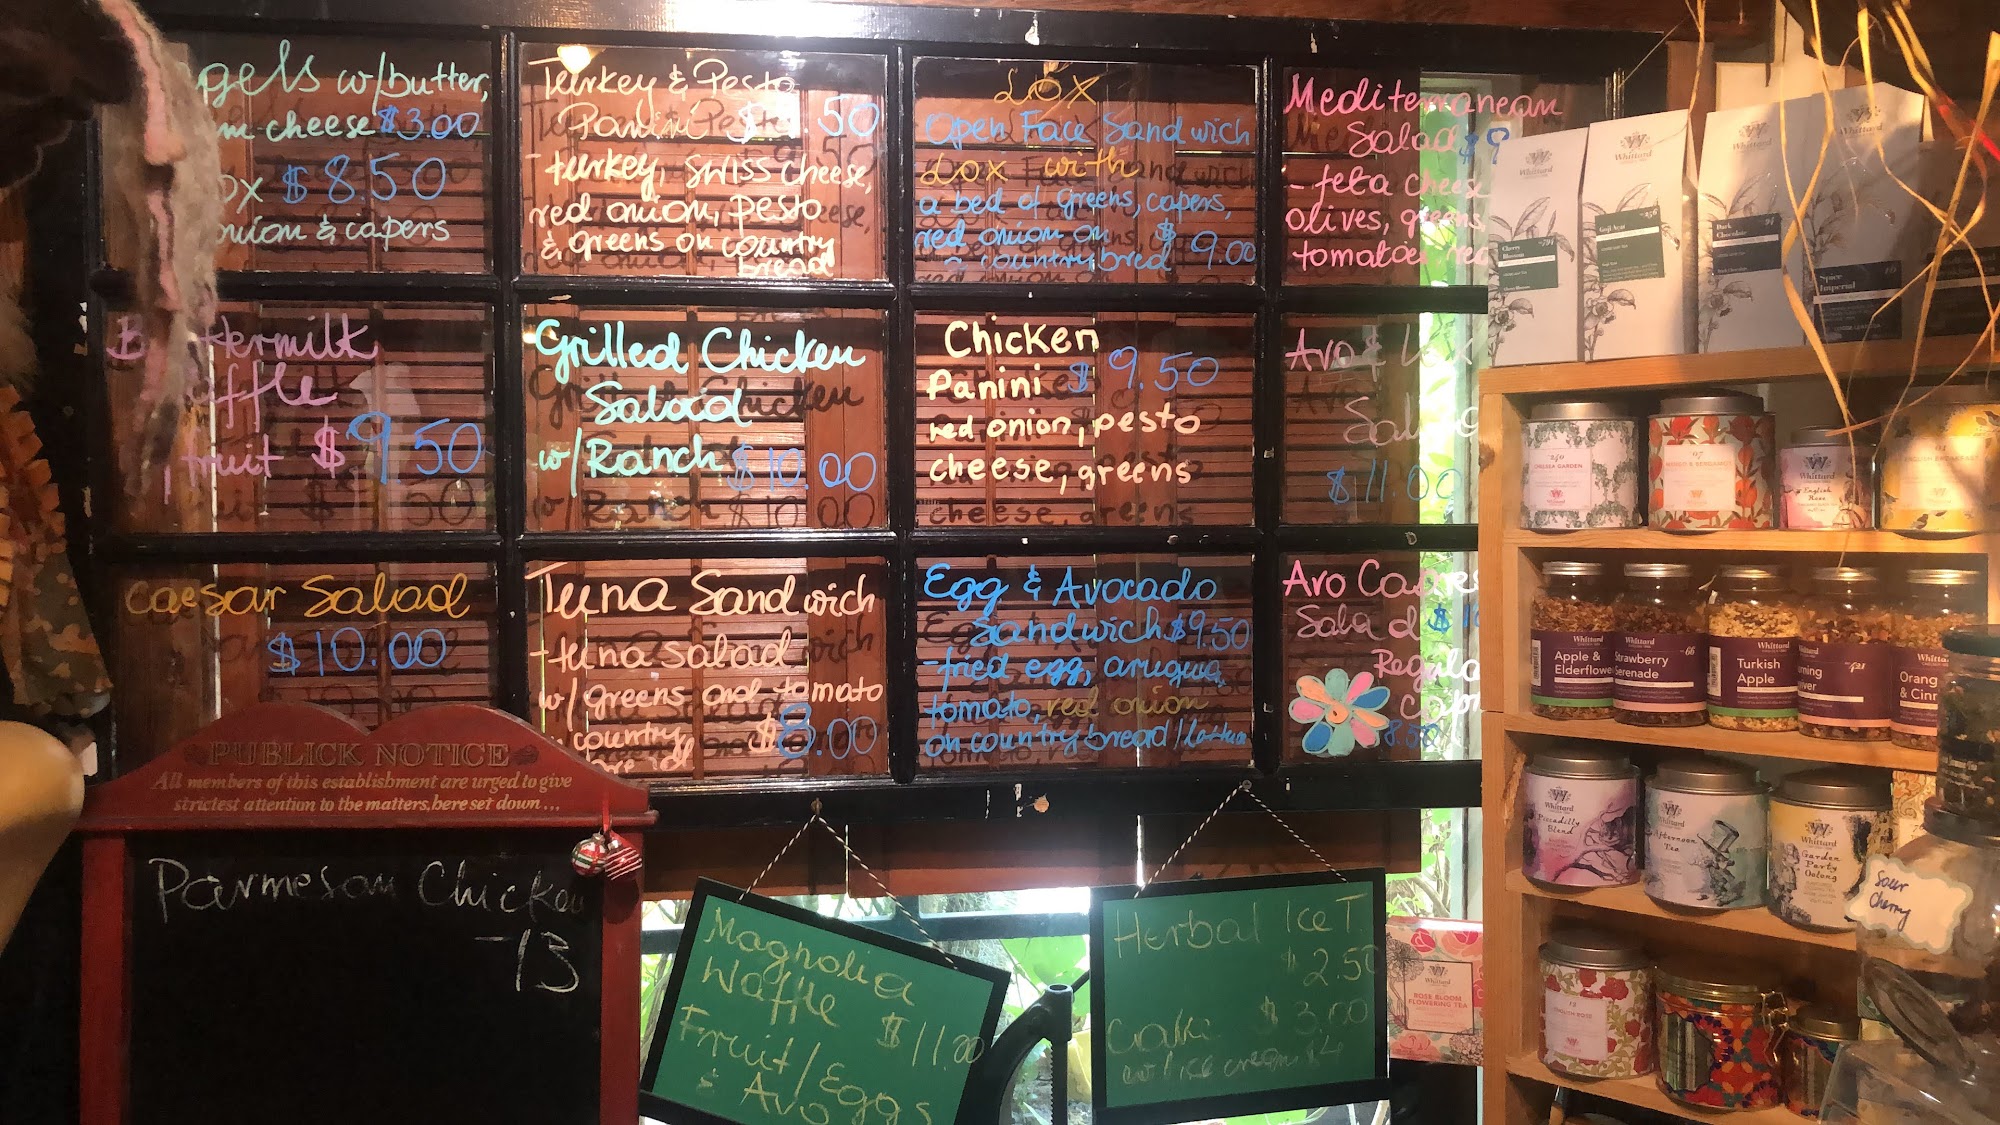 w/butter,
cheese $3.00
$8.50
onion & capers
Turkey & Pesto
Panini $ .50
-turkey, swiss cheese,
red onion, pesto
& greens on country
bread
LOX
Open Face Sandwich
Lox with
a bed of greens, capers,
red onion on $
country bred 9.00
Mediterranean
Salad $9
- feta cheese
olives, greens,
tomatoe
fruit $9.50
Grilled Chicken
Salad
w/Ranch $10.00
Chicken
Panini $9.50
red onion, pesto
cheese, greens
Avo & Lox
$11.00
Caesar Salad
$10.00
Tuna Sandwich
-tuna salad
w/greens and tomato
country $8.00
bread
Egg & Avocado
Sandwich $9.50
-fried egg, arugua,
tomato, red onion
on country bread/
Avo
Salad
8.50
PUBLICK NOTICE
All members of this establishment are urged to give
strictest attention to the matters, here set down...
Parmesan Chicken
-13
Magnolia
Waffle
$11.00
Fruit/Eggs
& Avo
Herbal Ice T.
$2.50
Cake $3.00
w/ice cream $4
Whittard
Cherry
Blossom
Whittard
Goji Acai
Whittard
Dark
Chocolate
Whittard
Spice
Imperial
CHELSEA GARDEN
English
Rose
ENGLISH BREAKFAST
Whittard
Apple &
Elderflower
Whittard
Strawberry
Serenade
66
Whittard
Turkish
Apple
421
Orang
& Cinn
Whittard
Piccadilly
Blend
Whittard
Afternoon
Tea
Whittard
Garden
Party
Oolong
Sour
Cherry
Whittard
ROSE BLOOM
FLOWERING TEA
ENGLISH ROSE